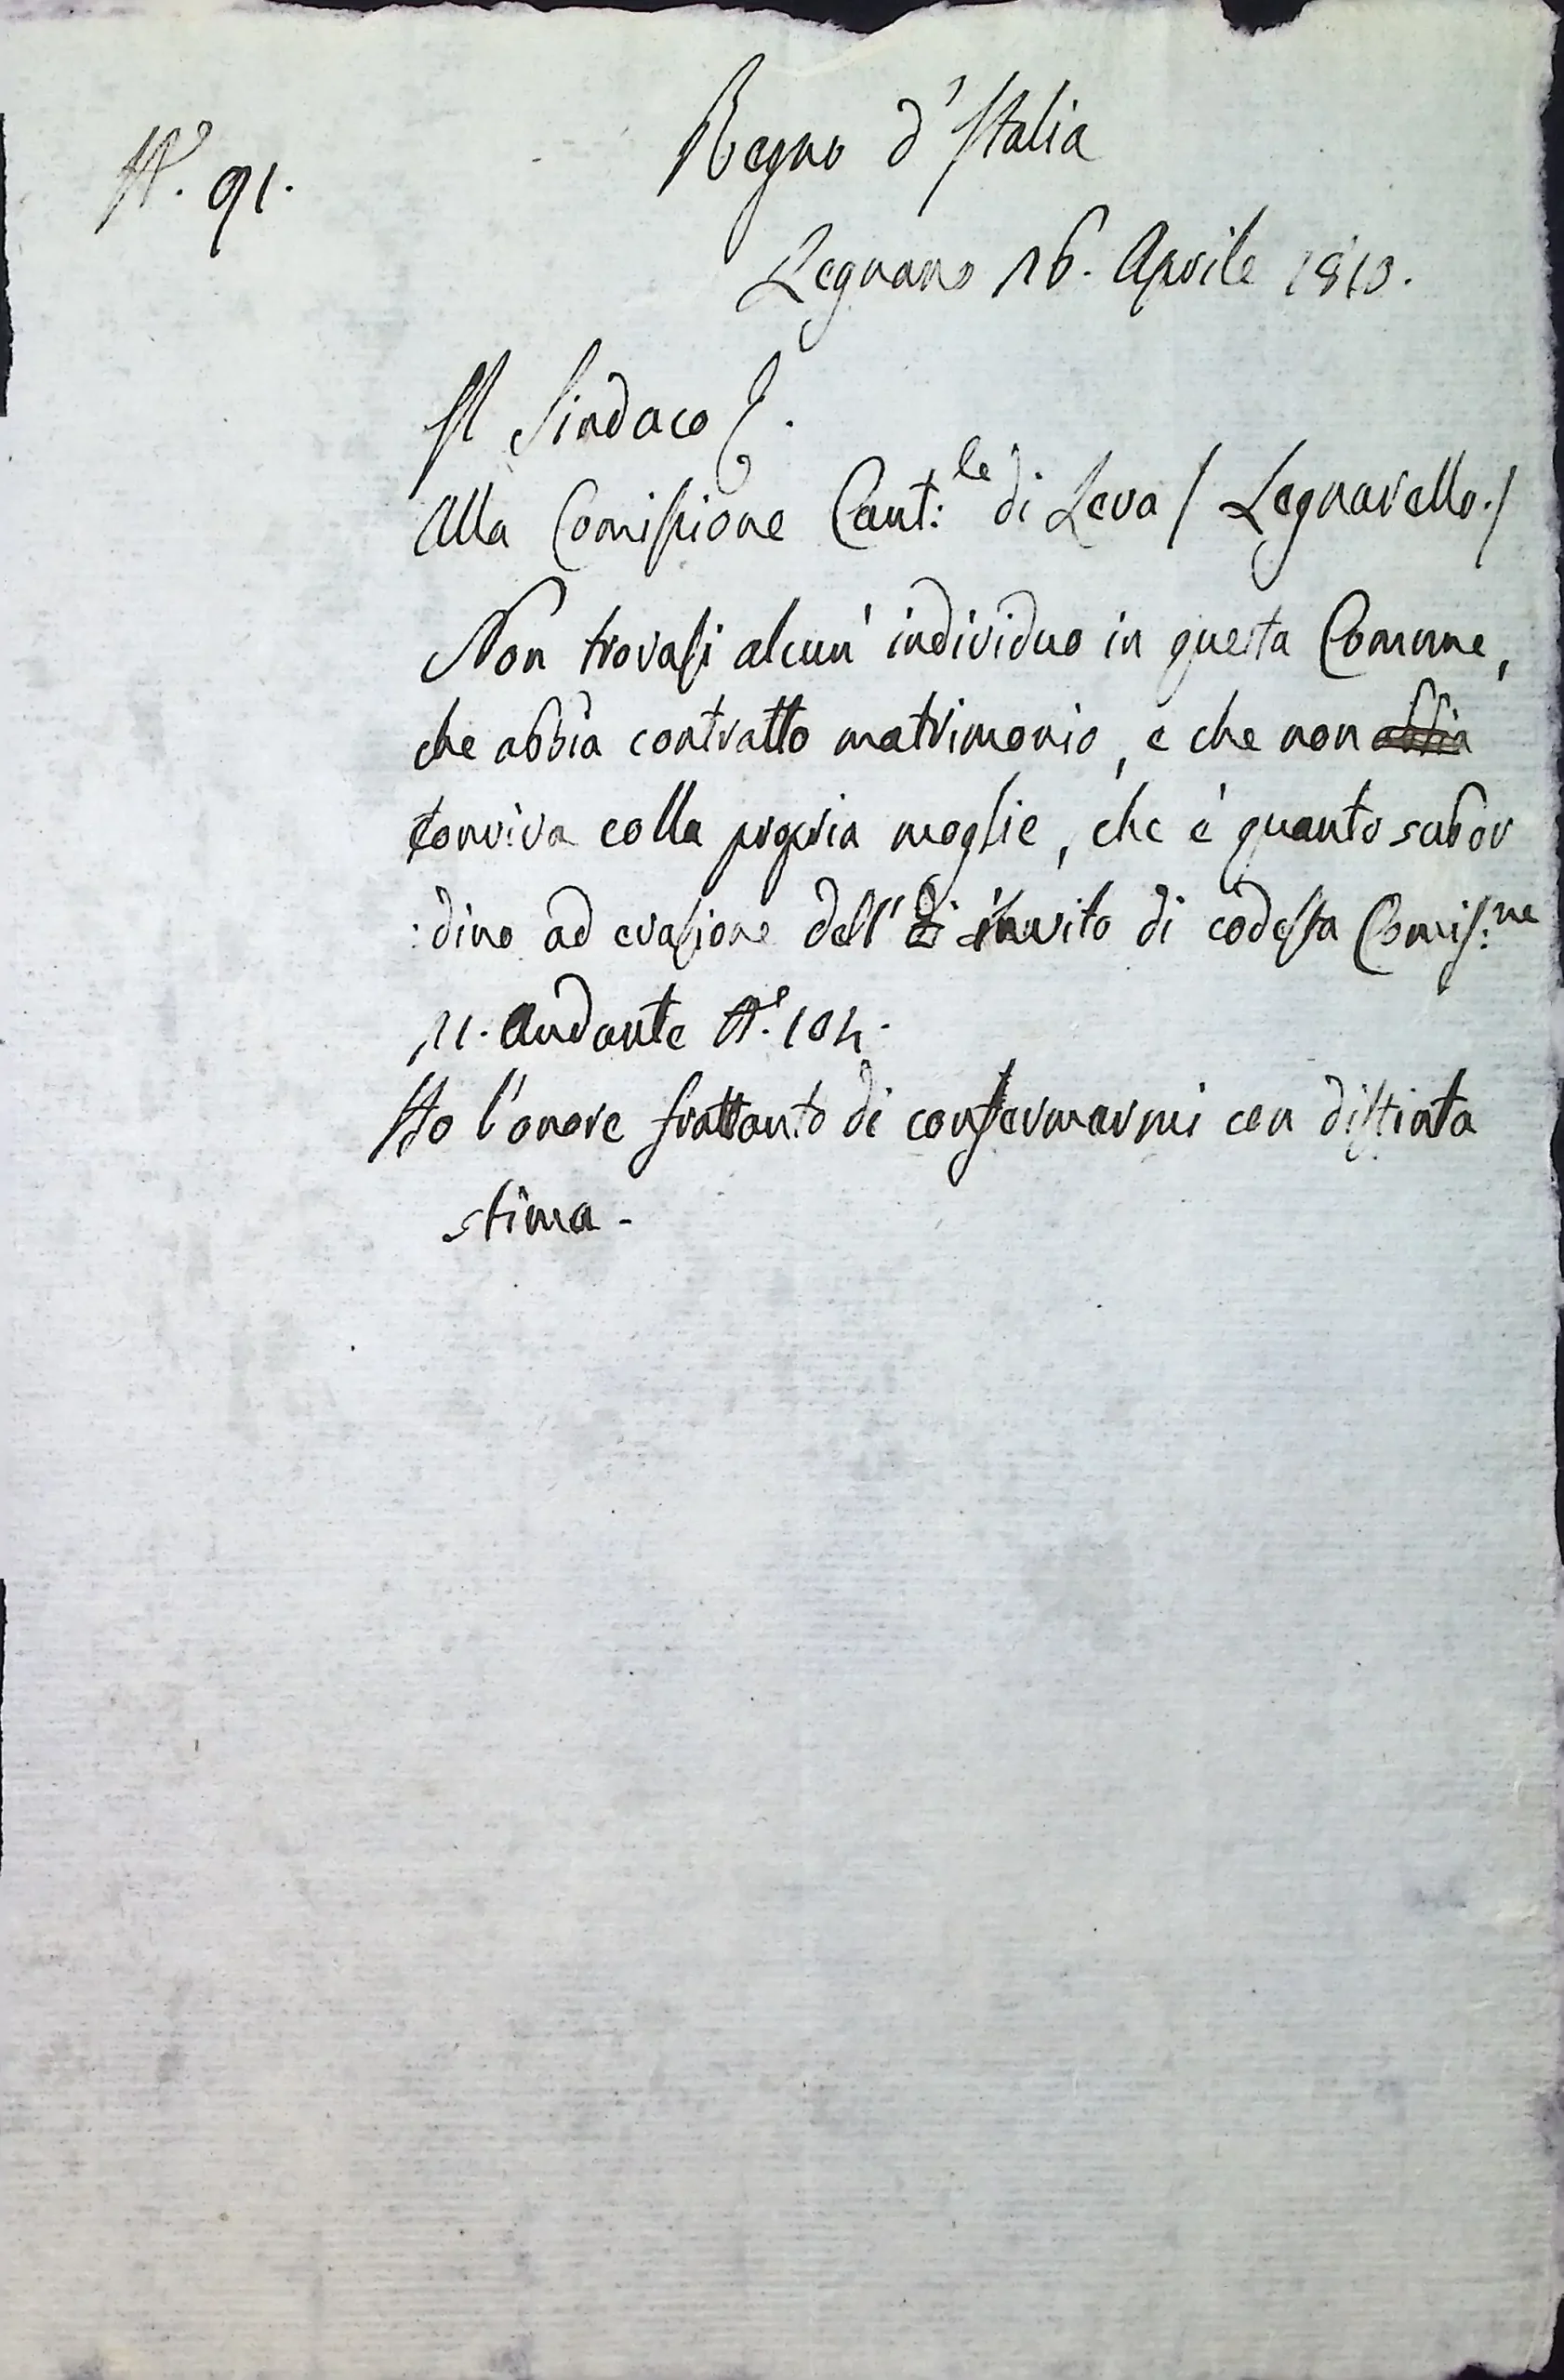 N.° 91.
Regno d'Italia
Legnano 16. Aprile 1813.
Il Sindaco
Alla Comissione Cant:le di Leva / Legnarello./
Non trovasi alcun' individuo in questa Comune,
che abbia contratto matrimonio, e che non abbia
conviva colla propria moglie, che è quanto subor
:dino ad evasione dell' di invito di codesta Comis:ne
11. Andante N.° 104.
Ho l'onore frattanto di confermarmi con distinta
stima.